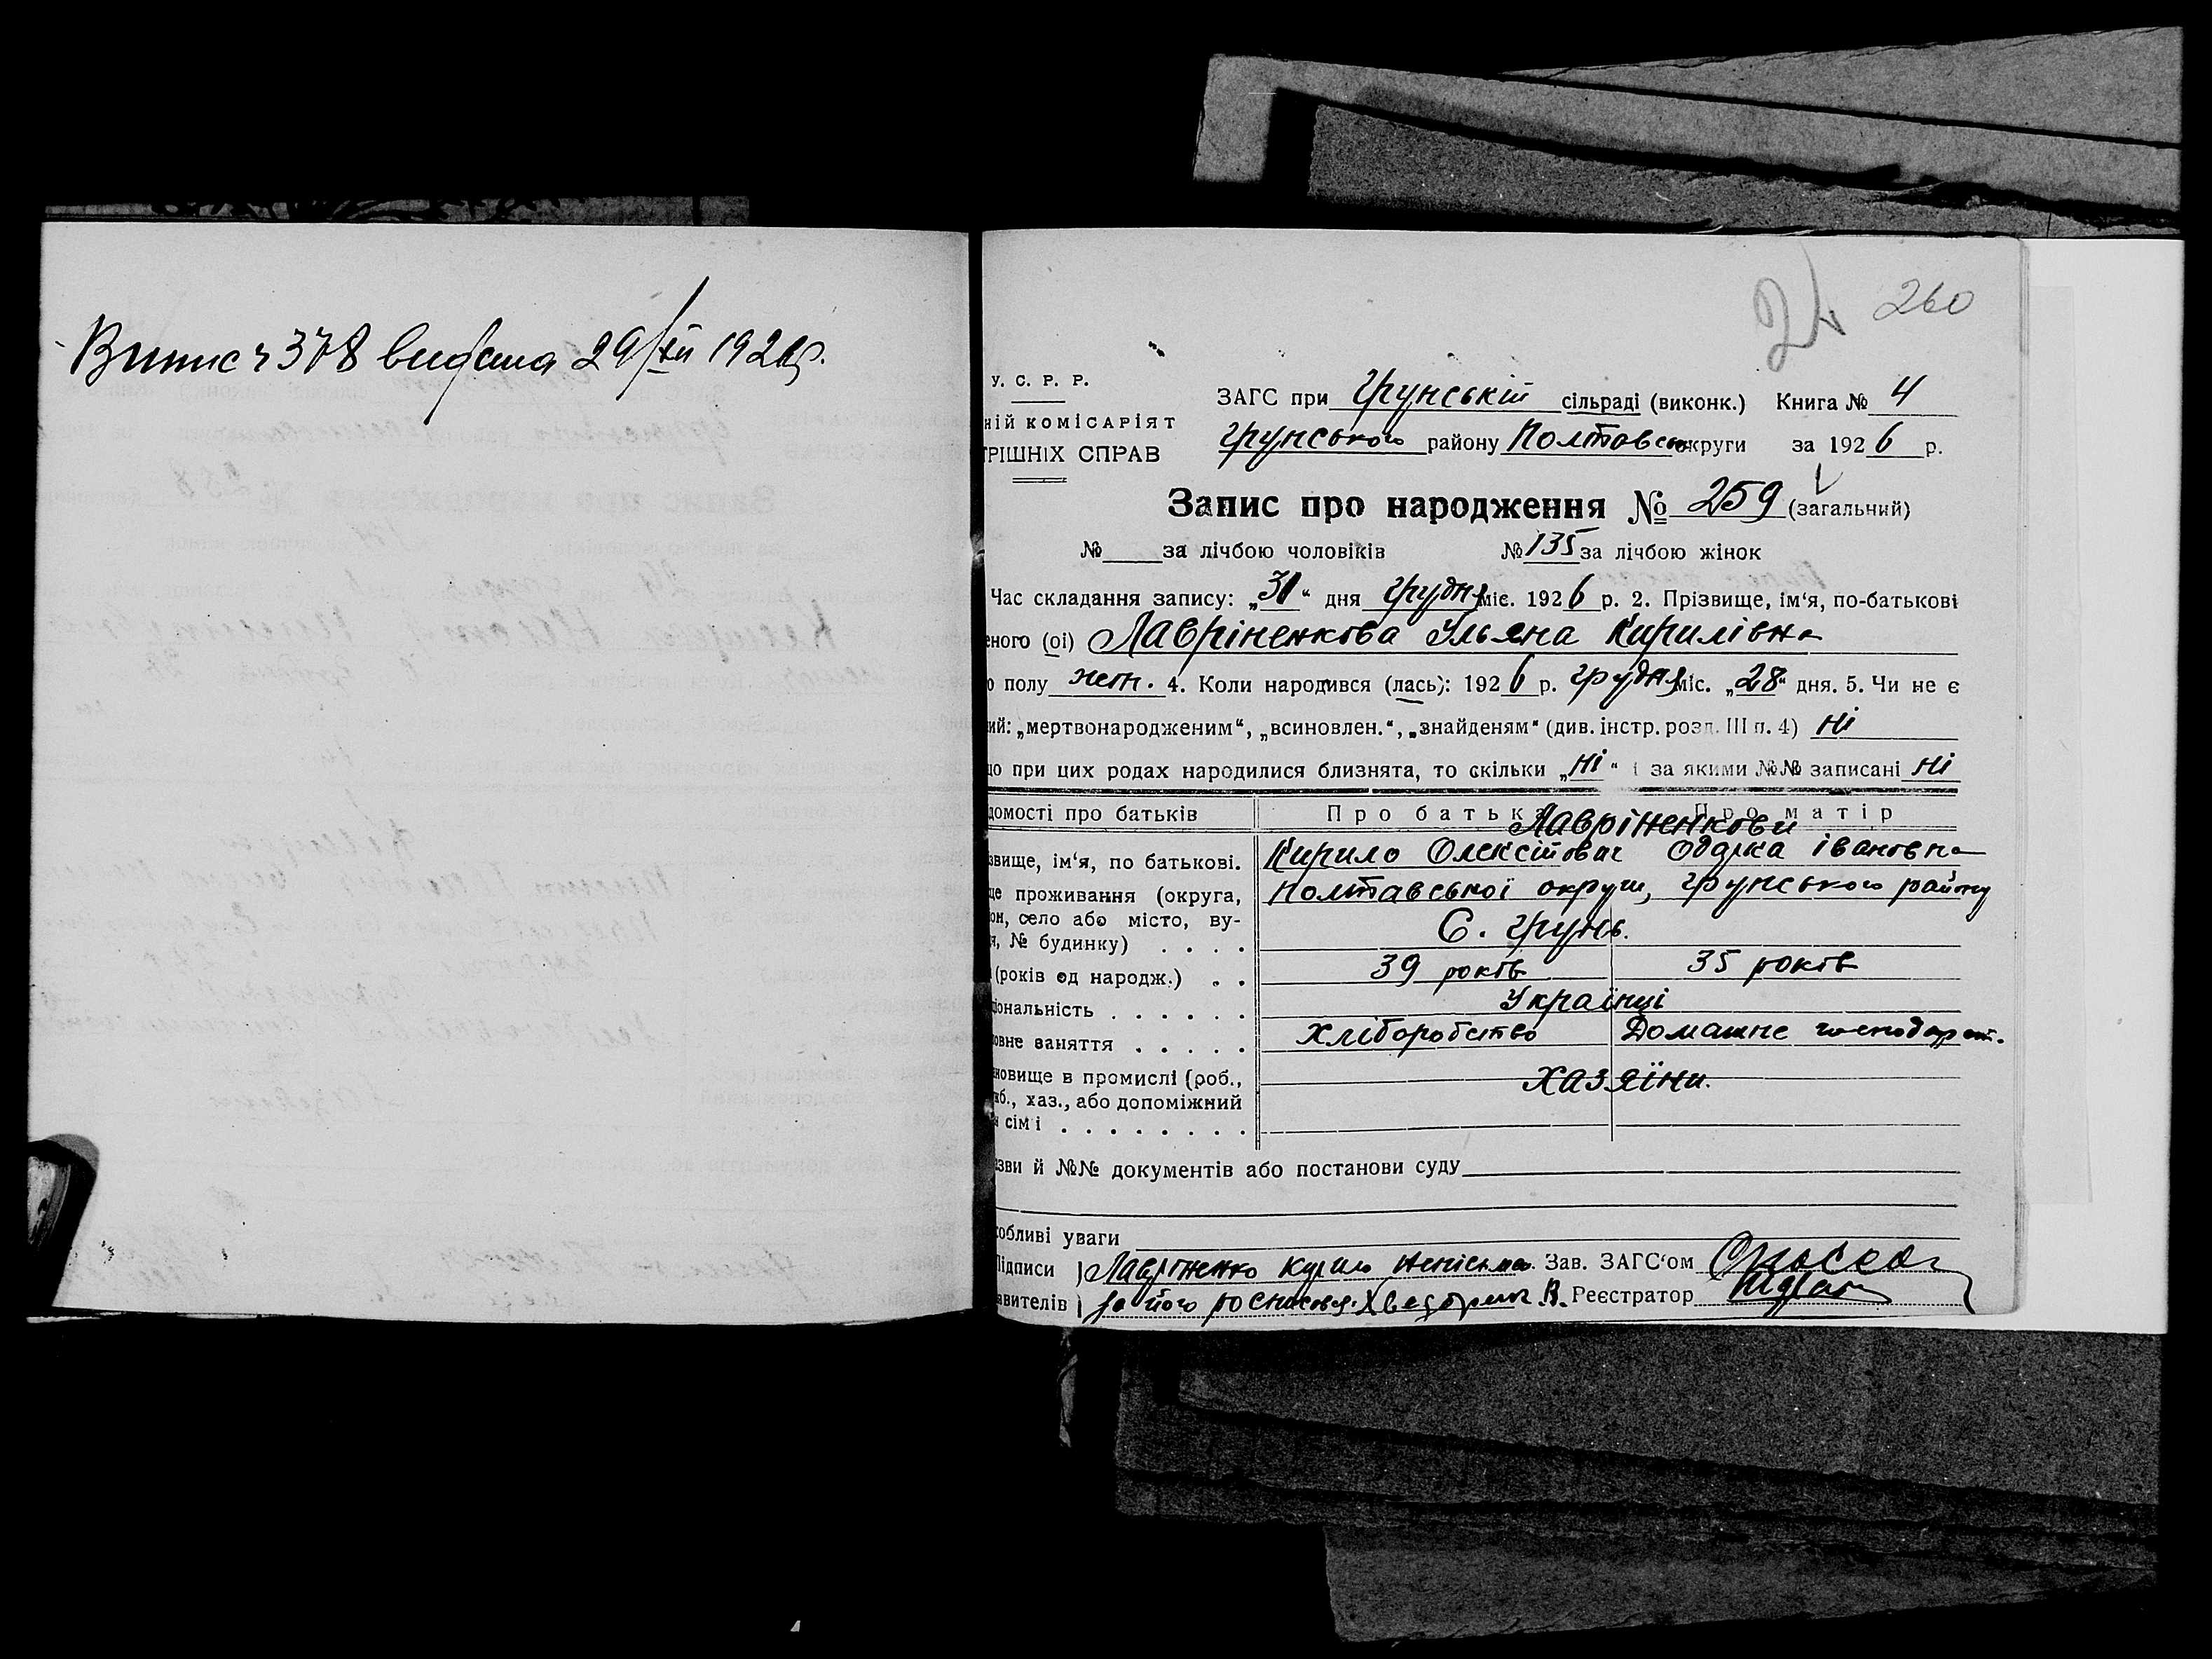 Випис ч 378 видана 29/XII 192 р.
260
У. С. Р. Р.
ЗАГС при Грунській сільраді (виконк.) Книга № 4
ній комісаріят
Грунського району Полтавськ округи за 1926 р.
трішніх справ
Запис про народження № 259 (загальний)
№ за лічбою чоловіків № 135 за лічбою жінок
Час складання запису: „31" дня грудня міс. 1926 р. 2. Прізвище, ім'я, по-батькові
еного (ої) Лавріненкова Ульяна Кирилівна
о полу жен. 4. Коли народився (лась): 1926 р. грудня міс. „28" дня. 5. Чи не є
ий: „мертвонародженим", „всиновлен.", „знайденям" (див. інстр. розд. III п. 4) Ні
що при цих родах народилися близнята, то скільки „Ні" і за якими №№ записані Ні
домості про батьків Про батька Про матір
Лавріненкови
звище, ім'я, по батькові. Кирило Олексійович Одарка Івановна
це проживання (округа, Полтавської округи, Грунського району
он, село або місто, ву-
я, № будинку) . . . . С. Грунь.
(років од народж.) . . 39 років 35 років
ціональність . . . . . . Українці
овне заняття . . . . . Хліборобство Домашнє господарст.
новище в промислі (роб., Хазяїни.
жб., хаз., або допоміжний
н сім'ї . . . . . . . .
азви й №№ документів або постанови суду
собливі уваги
Підписи Лавріненко Кирило Зав. ЗАГС'ом
авителів за його росписовся Реєстратор